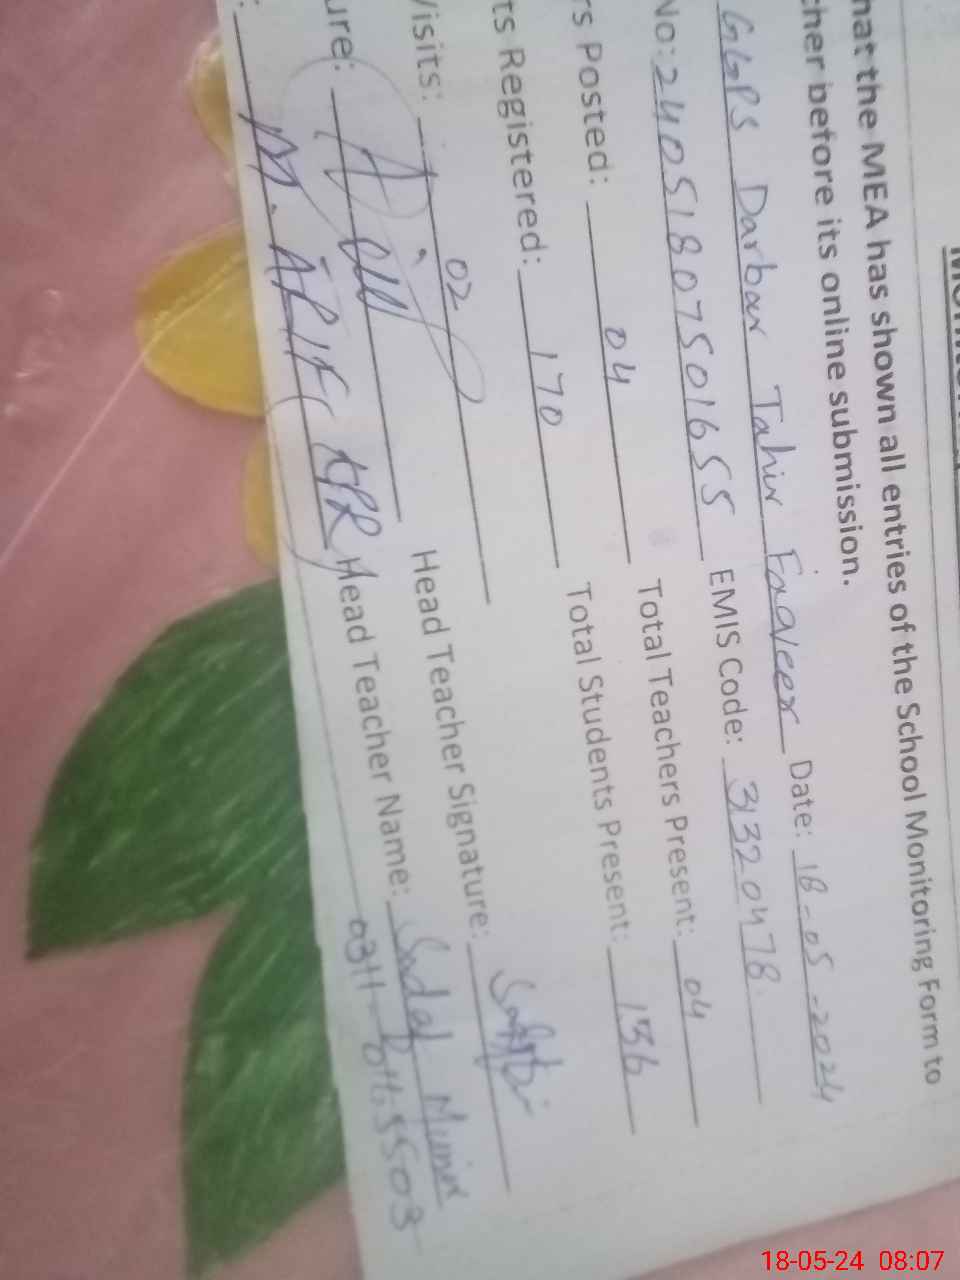 hat the MEA has shown all entries of the School Monitoring Form to
cher before its online submission.
GGPS Darbar Tahir Faqeer Date: 18-05-2024
No: 24051807501655 EMIS Code: 31320478
rs Posted: 04 Total Teachers Present: 04
ts Registered: 170 Total Students Present: 156
Visits: 02 Head Teacher Signature:
ure: Head Teacher Name: Sadaf Munir
: M. ARIF
18-05-24 08:07